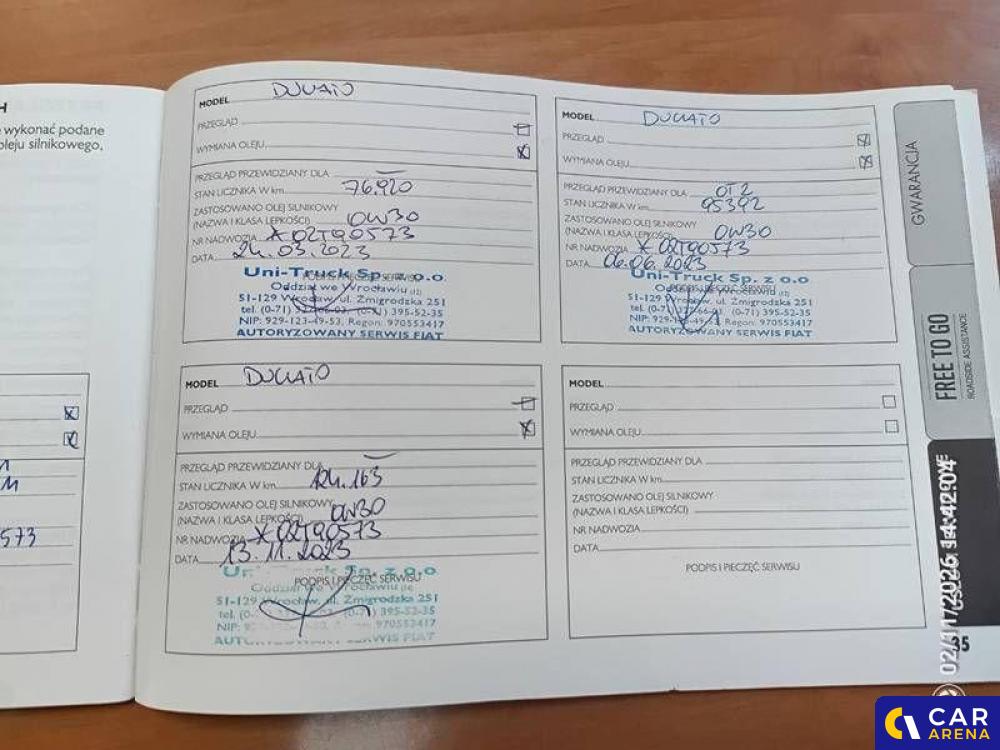 H
wykonać podane
oleju silnikowego,
11
573
MODEL DUCATO
PRZEGLĄD
WYMIANA OLEJU
PRZEGLĄD PRZEWIDZIANY DLA —
STAN LICZNIKA W km 76.920
ZASTOSOWANO OLEJ SILNIKOWY
(NAZWA I KLASA LEPKOŚCI) 0W30
NR NADWOZIA * 02T90573
DATA 24.03.2023
PODPIS I PIECZĘĆ SERWISU
Uni-Truck Sp. z o.o
Oddział we Wrocławiu (12)
51-129 Wrocław, ul. Żmigrodzka 251
tel. (0-71) 395-52-35
NIP: 929-123-49-53, Regon: 970553417
AUTORYZOWANY SERWIS FIAT
MODEL DUCATO
PRZEGLĄD
WYMIANA OLEJU
PRZEGLĄD PRZEWIDZIANY DLA OT 2
STAN LICZNIKA W km 95392
ZASTOSOWANO OLEJ SILNIKOWY
(NAZWA I KLASA LEPKOŚCI) 0W30
NR NADWOZIA * 02T90573
DATA 06.06.2023
PODPIS I PIECZĘĆ SERWISU
Uni-Truck Sp. z o.o
Oddział we Wrocławiu (12)
51-129 Wrocław, ul. Żmigrodzka 251
tel. (0-71) 395-52-35
Regon: 970553417
AUTORYZOWANY SERWIS FIAT
MODEL DUCATO
PRZEGLĄD
WYMIANA OLEJU
PRZEGLĄD PRZEWIDZIANY DLA —
STAN LICZNIKA W km 124.163
ZASTOSOWANO OLEJ SILNIKOWY
(NAZWA I KLASA LEPKOŚCI) 0W30
NR NADWOZIA * 02T90573
DATA 13.11.2023
PODPIS I PIECZĘĆ SERWISU
Sp. z o.o
Oddział we Wrocławiu (12)
51-129 Wrocław, ul. Żmigrodzka 251
tel. 395-52-35
NIP: 970553417
SERWIS FIAT
MODEL
PRZEGLĄD
WYMIANA OLEJU
PRZEGLĄD PRZEWIDZIANY DLA
STAN LICZNIKA W km
ZASTOSOWANO OLEJ SILNIKOWY
(NAZWA I KLASA LEPKOŚCI)
NR NADWOZIA
DATA
PODPIS I PIECZĘĆ SERWISU
GWARANCJA
FREE TO GO
ROADSIDE ASSISTANCE
02/11/2026 14:42:04
35
CAR
ARENA